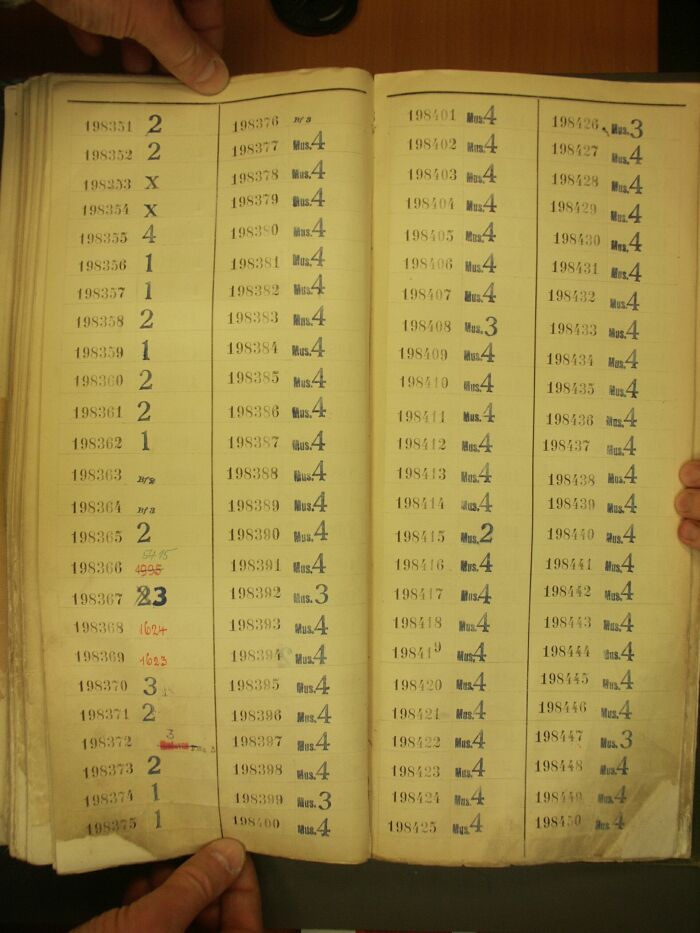 198351 2
198352 2
198353 x
198354 x
198355 4
198356 1
198357 1
198358 2
198359 1
198360 2
198361 2
198362 1
198363
198364
198365 2
198366 5715 1995
198367 23
198368 1624
198369 1623
198370 3
198371 2
198372 3
198373 2
198374 1
198375 1
198376
198377 Mus.4
198378 Mus.4
198379 Mus.4
198380 Mus.4
198381 Mus.4
198382 Mus.4
198383 Mus.4
198384 Mus.4
198385 Mus.4
198386 Mus.4
198387 Mus.4
198388 Mus.4
198389 Mus.4
198390 Mus.4
198391 Mus.4
198392 Mus.3
198393 Mus.4
198394 Mus.4
198395 Mus.4
198396 Mus.4
198397 Mus.4
198398 Mus.4
198399 Mus.3
198400 Mus.4
198401 Mus.4
198402 Mus.4
198403 Mus.4
198404 Mus.4
198405 Mus.4
198406 Mus.4
198407 Mus.4
198408 Mus.3
198409 Mus.4
198410 Mus.4
198411 Mus.4
198412 Mus.4
198413 Mus.4
198414 Mus.4
198415 Mus.2
198416 Mus.4
198417 Mus.4
198418 Mus.4
198419 Mus.4
198420 Mus.4
198421 Mus.4
198422 Mus.4
198423 Mus.4
198424 Mus.4
198425 Mus.4
198426 Mus.3
198427 Mus.4
198428 Mus.4
198429 Mus.4
198430 Mus.4
198431 Mus.4
198432 Mus.4
198433 Mus.4
198434 Mus.4
198435 Mus.4
198436 Mus.4
198437 Mus.4
198438 Mus.4
198439 Mus.4
198440 Mus.4
198441 Mus.4
198442 Mus.4
198443 Mus.4
198444 Mus.4
198445 Mus.4
198446 Mus.4
198447 Mus.3
198448 Mus.4
198449 Mus.4
198450 Mus.4